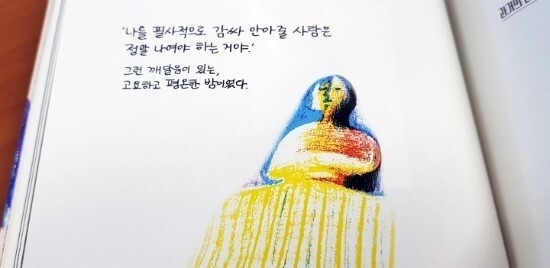 '나를 필사적으로 감싸 안아줄 사람은
정말 나여야 하는 거야.'
그런 깨달음이 있는,
고요하고 평온한 밤이었다.